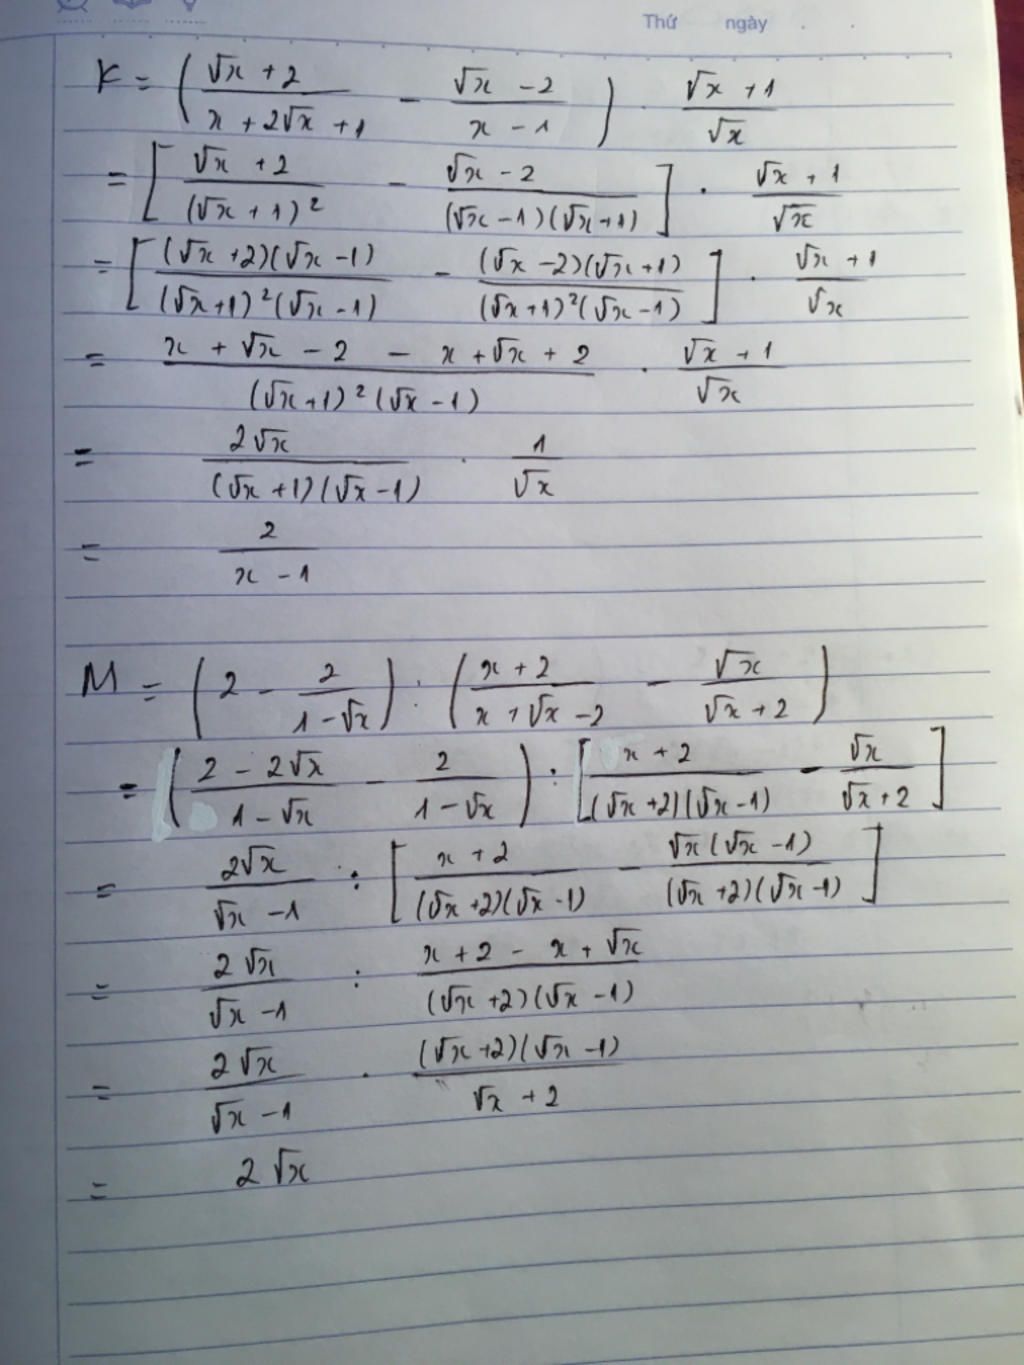 Thứ ngày . .
K = ( (√x + 2)/(x + 2√x + 1) - (√x - 2)/(x - 1) ) . (√x + 1)/√x
= [ (√x + 2)/(√x + 1)² - (√x - 2)/((√x - 1)(√x + 1)) ] . (√x + 1)/√x
= [ ((√x + 2)(√x - 1))/((√x + 1)²(√x - 1)) - ((√x - 2)(√x + 1))/((√x + 1)²(√x - 1)) ] . (√x + 1)/√x
= (x + √x - 2 - x + √x + 2)/((√x + 1)²(√x - 1)) . (√x + 1)/√x
= 2√x/((√x + 1)(√x - 1)) . 1/√x
= 2/(x - 1)
M = ( 2 - 2/(1 - √x) ) : ( (x + 2)/(x + √x - 2) - √x/(√x + 2) )
= ( (2 - 2√x)/(1 - √x) - 2/(1 - √x) ) : [ (x + 2)/((√x + 2)(√x - 1)) - √x/(√x + 2) ]
= 2√x/(√x - 1) : [ (x + 2)/((√x + 2)(√x - 1)) - (√x(√x - 1))/((√x + 2)(√x - 1)) ]
= 2√x/(√x - 1) : (x + 2 - x + √x)/((√x + 2)(√x - 1))
= 2√x/(√x - 1) . ((√x + 2)(√x - 1))/(√x + 2)
= 2√x